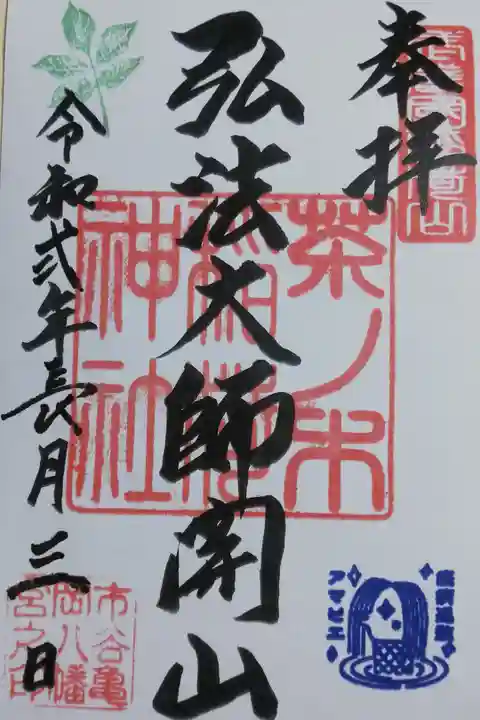 奉拝
弘法大師開山
茶ノ木
稲荷
神社
令和弐年長月三日
市谷亀
岡八幡
宮之印
アマビエ